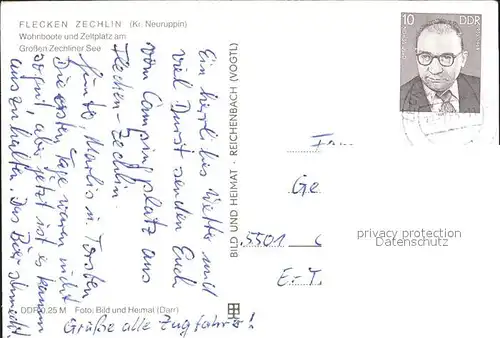 FLECKEN ZECHLIN (Kr. Neuruppin)
Wohnboote und Zeltplatz am
Großen Zechliner See
Ein herrliches Wetter und
viel Durst senden Euch
vom Campingplatz aus
Flecken-Zechlin
Günter, Marlis u. Torsten
Die ersten Tage waren nicht
so gut, aber jetzt ist es kaum
auszuhalten. Das Bier schmeckt!
Grüße alle Zugfahrer!
DDR 0:25 M Foto: Bild und Heimat (Darr)
BILD UND HEIMAT · REICHENBACH (VOGTL)
10 DDR
Ge
5501
E.-T.
privacy protection
Datenschutz